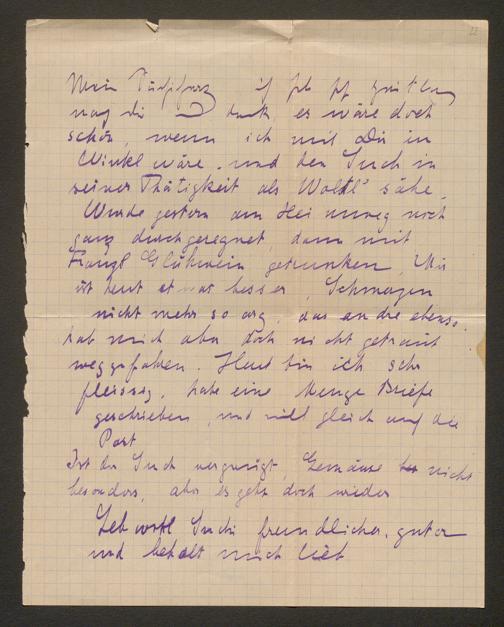 Mein
nach dir und denk es wäre doch
schön, wenn ich mit Dir in
Winkl wäre, und den Such in
seiner Thätigkeit als Woltl sähe.
Wurde gestern am Heimweg noch
ganz durchgeregnet, dann mit
Franzl Glühwein getrunken, Mir
ist heut etwas besser, Schmagen
nicht mehr so arg, das andre ebenso,
hab mich aber doch nicht getraut
wegzufahren. Heut bin ich sehr
fleissig, habe eine Menge Briefe
geschrieben, und will gleich auf die
Post
Ist der Such vergnügt, nicht
besonders, aber es geht doch wieder
Leb wohl Suchi freundlicher, guter
und behalt mich lieb